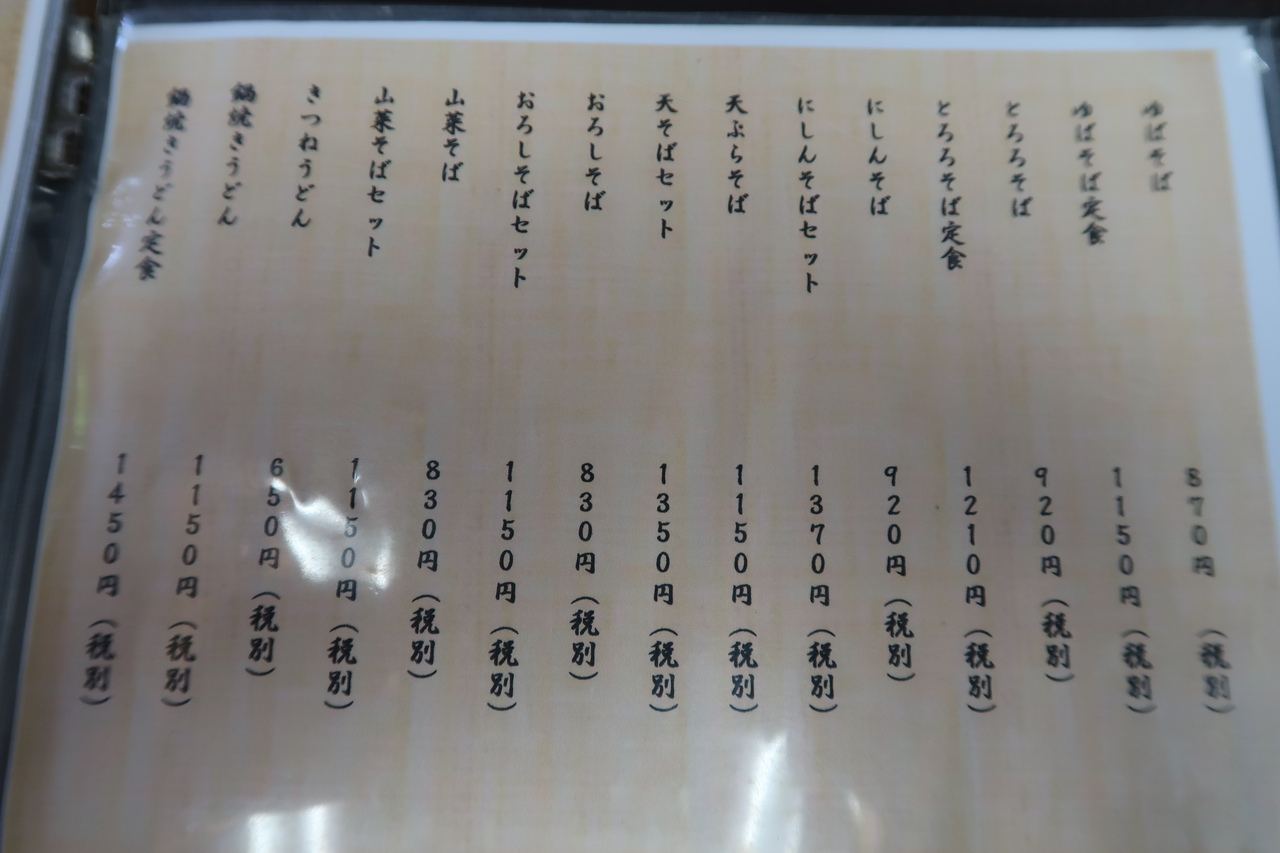 ゆばそば 870円（税別）
ゆばそば定食 1150円（税別）
とろろそば 920円（税別）
とろろそば定食 1210円（税別）
にしんそば 920円（税別）
にしんそばセット 1370円（税別）
天ぷらそば 1150円（税別）
天そばセット 1350円（税別）
おろしそば 830円（税別）
おろしそばセット 1150円（税別）
山菜そば 830円（税別）
山菜そばセット 1150円（税別）
きつねうどん 650円（税別）
鍋焼きうどん 1150円（税別）
鍋焼きうどん定食 1450円（税別）